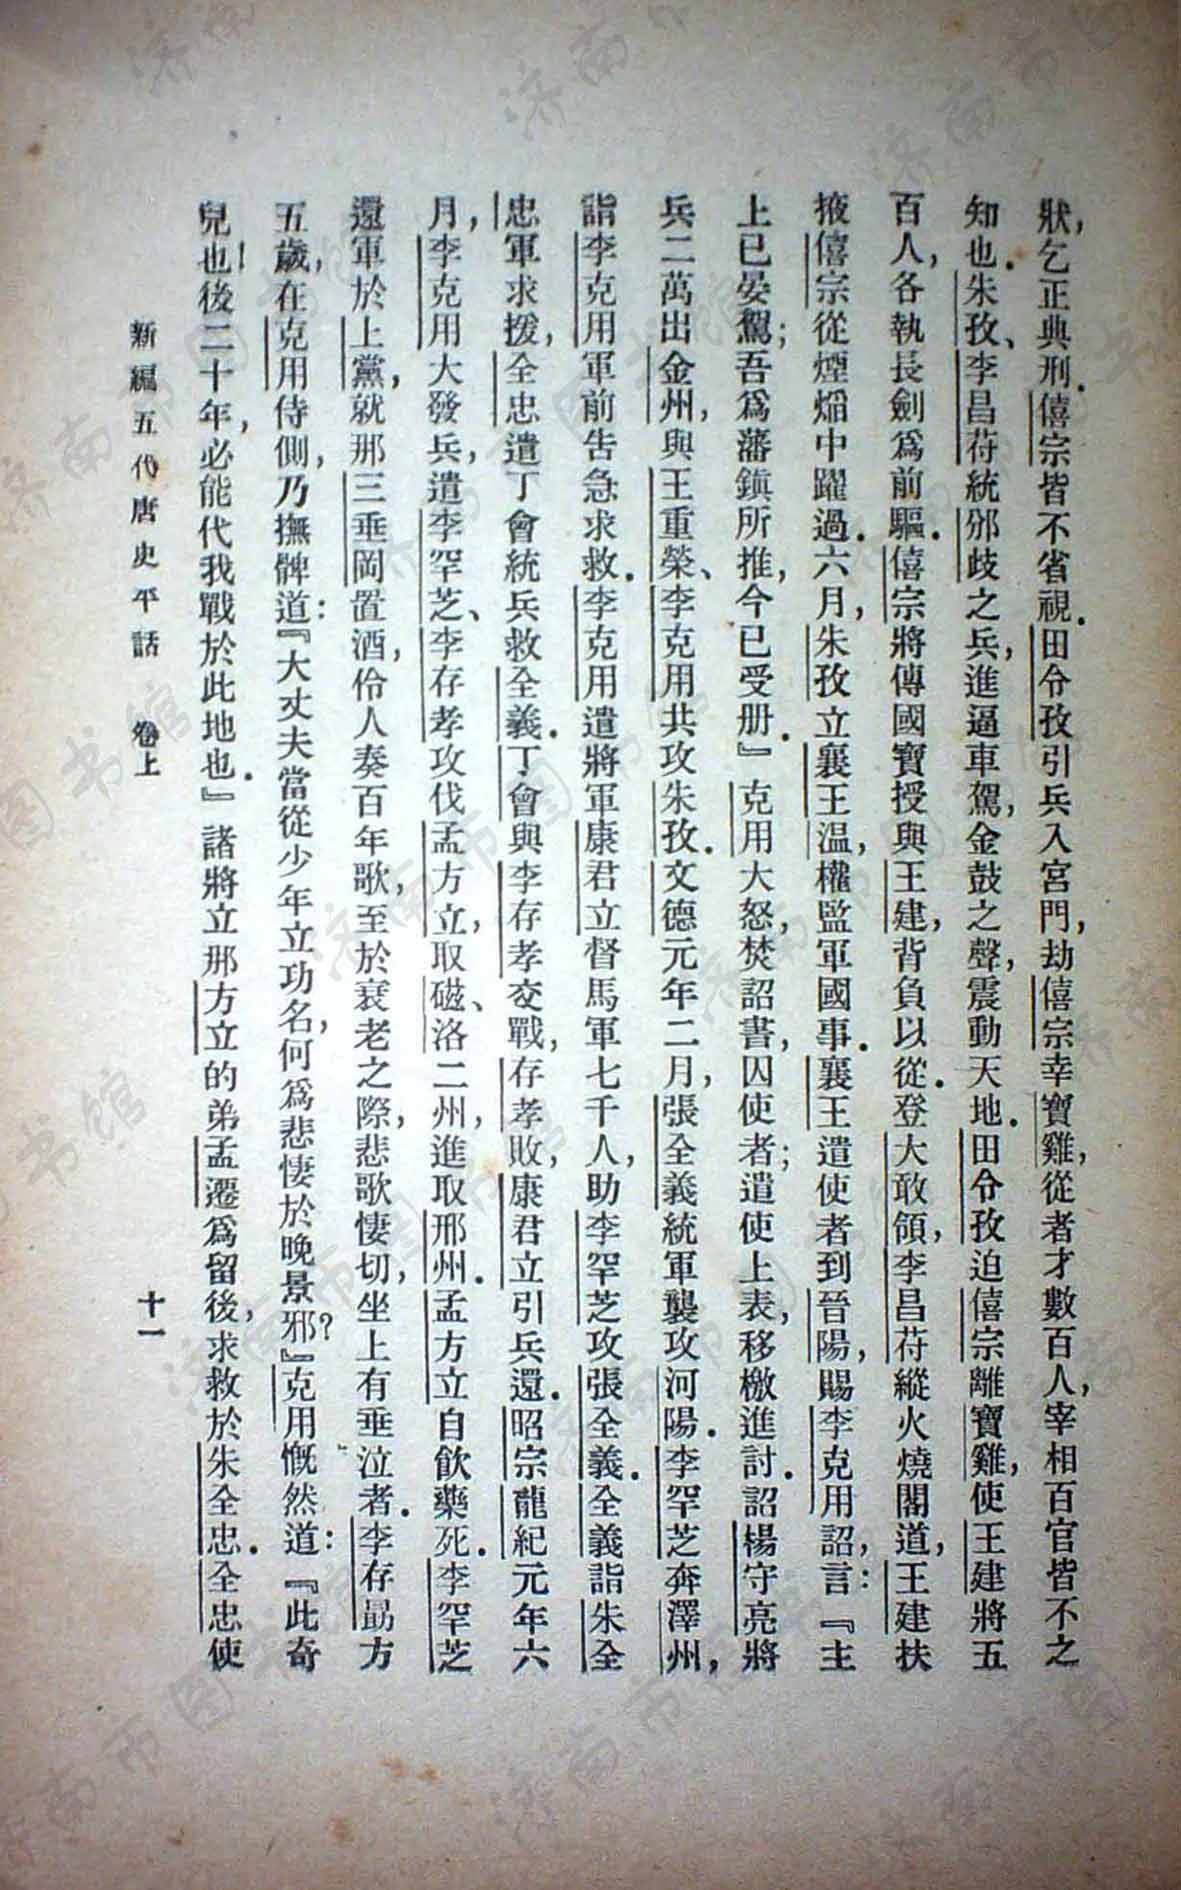 狀，乞正典刑．僖宗皆不省視．田令孜引兵入宮門，劫僖宗幸寶雞，從者才數百人，宰相百官皆不之
知也．朱孜、李昌苻統邠歧之兵，進逼車駕，金鼓之聲，震動天地．田令孜迫僖宗離寶雞，使王建將五
百人，各執長劍爲前驅．僖宗將傳國寶授與王建，背負以從．登大敢領，李昌苻縱火燒閣道，王建扶
掖僖宗從煙焰中躍過．六月，朱孜立襄王温，權監軍國事．襄王遣使者到晉陽，賜李克用詔，言：『主
上已晏駕；吾爲藩鎮所推，今已受册．』克用大怒，焚詔書，囚使者；遣使上表，移檄進討．詔楊守亮將
兵二萬出金州，與王重榮、李克用共攻朱孜．文德元年二月，張全義統軍襲攻河陽．李罕芝奔澤州，
詣李克用軍前告急求救．李克用遣將軍康君立督馬軍七千人，助李罕芝攻張全義．全義詣朱全
忠軍求援，全忠遣丁會統兵救全義．丁會與李存孝交戰，存孝敗，康君立引兵還．昭宗龍紀元年六
月，李克用大發兵，遣李罕芝、李存孝攻伐孟方立，取磁、洛二州，進取邢州．孟方立自飲藥死．李罕芝
還軍於上黨，就那三垂岡置酒，伶人奏百年歌，至於衰老之際，悲歌悽切，坐上有垂泣者．李存勗方
五歲，在克用侍側，乃撫髀道：『大丈夫當從少年立功名，何爲悲悽於晚景邪？』克用慨然道：『此奇
兒也！後二十年，必能代我戰於此地也．』諸將立那方立的弟孟遷爲留後，求救於朱全忠．全忠使
新編五代唐史平話　卷上　十一
济南市图书馆